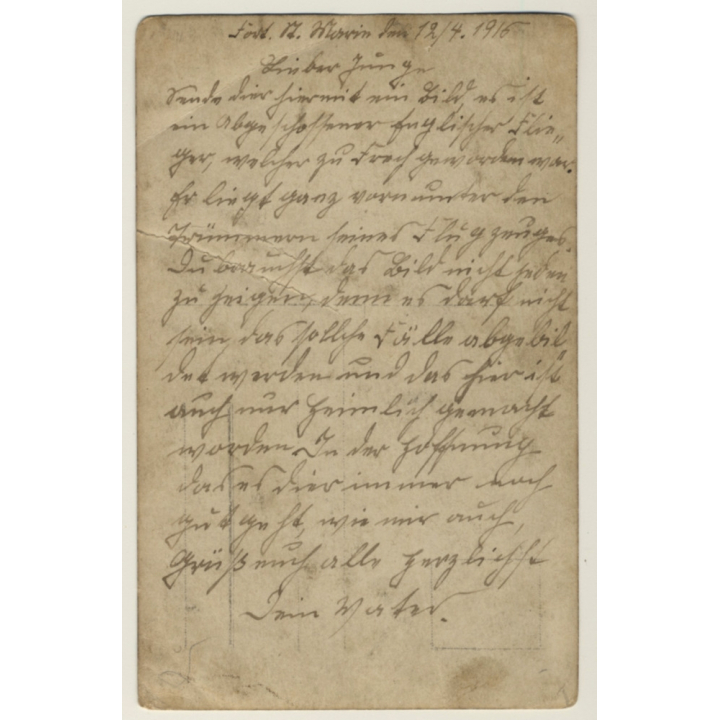 Fort. St. Marie den 12/4. 1916
Lieber Junge
Sende dier hiermit ein Bild, es ist
ein Abgeschossener Englischer Flie„
ger, welcher zu Frech geworden war.
Er liegt ganz vorn unter den
Trümmern seines Flugzeuges.
Du brauchst das Bild nicht jeden
zu zeigen, denn es darf nicht
sein, das sollche Fälle abgebil
det werden und das hier ist
auch nur Heimlich gemacht
worden. In der Hoffnung
das es dier immer noch
gut geht, wie mir auch,
Grüß euch alle herzlichst
Dein Vater.